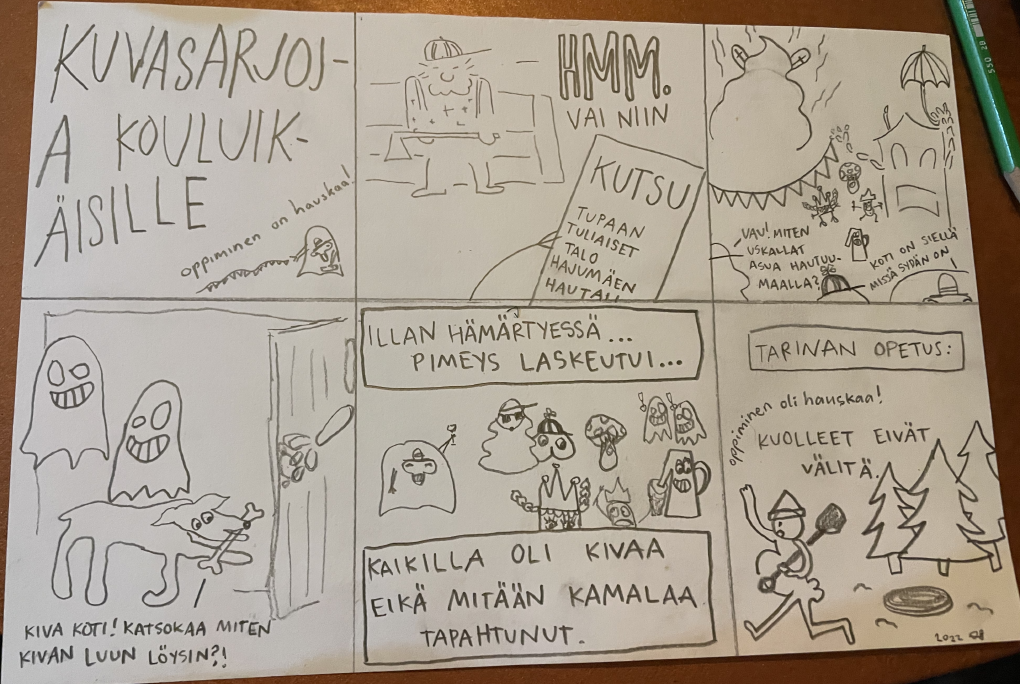 KUVASARJOJ-
A KOULUIK-
ÄISILLE
oppiminen on hauskaa!
HMM.
VAI NIIN
KUTSU
TUPAAN
TULIAISET
TALO
HAJUMÄEN
HAUTAU
VAU! MITEN
USKALLAT
ASUA HAUTUU-
MAALLA?
KOTI ON SIELLÄ
MISSÄ SYDÄN ON!
KIVA KOTI! KATSOKAA MITEN
KIVAN LUUN LÖYSIN?!
ILLAN HÄMÄRTYESSÄ...
PIMEYS LASKEUTUI...
KAIKILLA OLI KIVAA
EIKÄ MITÄÄN KAMALAA
TAPAHTUNUT.
TARINAN OPETUS:
oppiminen oli hauskaa!
KUOLLEET EIVÄT
VÄLITÄ.
2022
550 2B